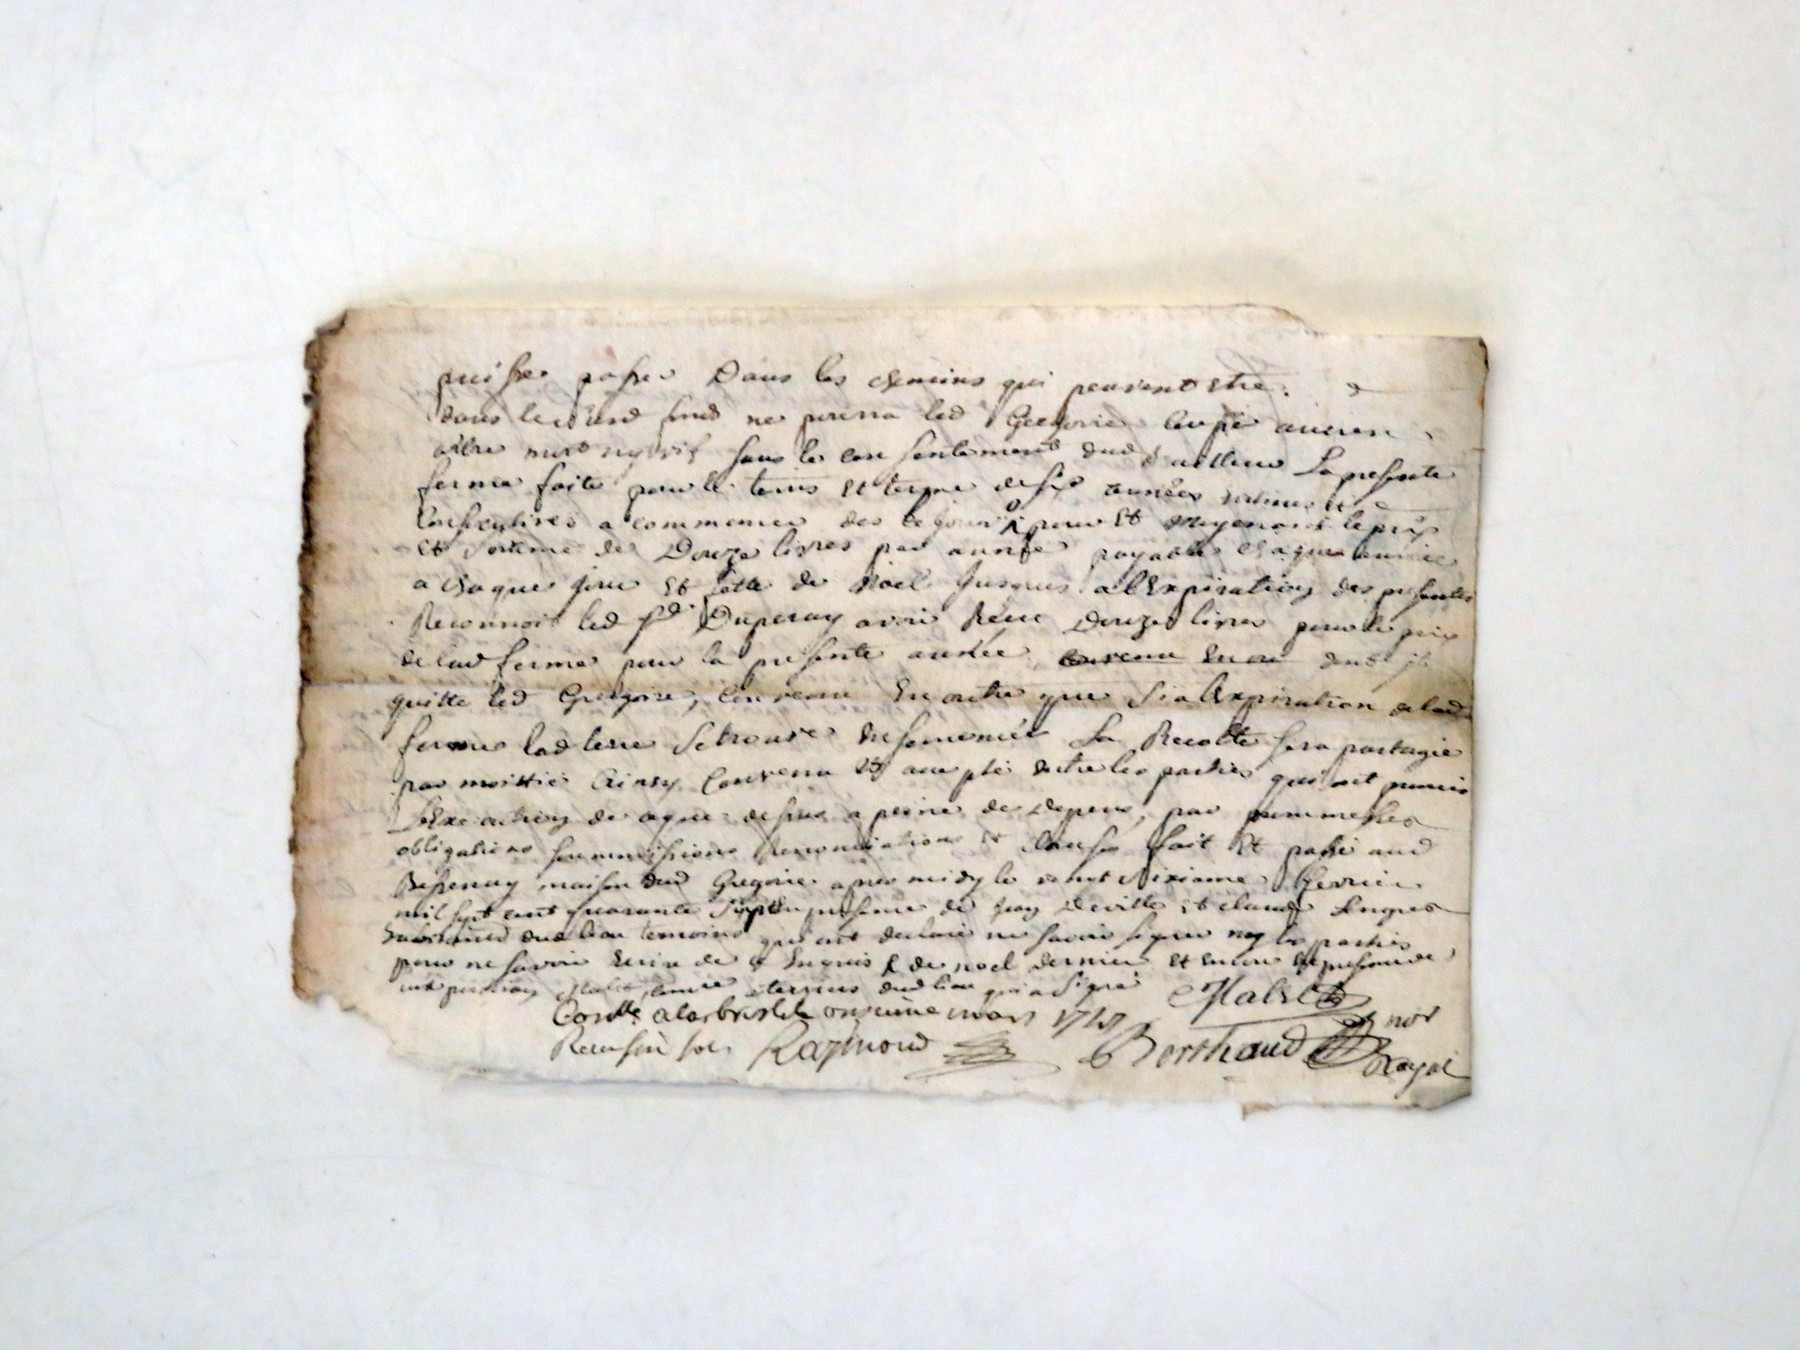 puisse passer Dans les chemins qui peuvent etre
dans fond ne pourra led Gregoire couper aucun
arbre sans le consentement dud La presente
ferme faite pour le tems et terme de six années
a commencer des ce jourd'huy pour et moyenant le prix
et somme de Douze livres par année payable chaque année
a chaque jour et fette de Noel Jusques a l'Expiration des presentes
Reconnois led sr Duperay avoir Receu Douze livres pour le prix
de lad ferme pour la presente année dont il
quitte led Gregoire, Convenu En outre que Si a l'Expiration de lad
ferme lad terre Se trouve Ensemencée La Recolte sera partagée
par moittié Ainsy Convenu et accepté entre les parties qui ont promis
L'Execution de ce que dessus a peine de Depens, par promesses
obligations soummissions Renonciations et Clauses fait et passé aud
maison dud Gregoire apres midy le vingt Sixieme fevrier
mil sept cent quarante Sept En presence de Jean Deville et claude
dud lieu temoins qui ont declaré ne savoir signer ny les parties
pour ne savoir Ecrire de ce Enquis de noel dernier et encore En presence de
dud lieu qui a Signé
Conllé a le onzieme mars 1747
Receu six sols Raymond Berthaud not Royal